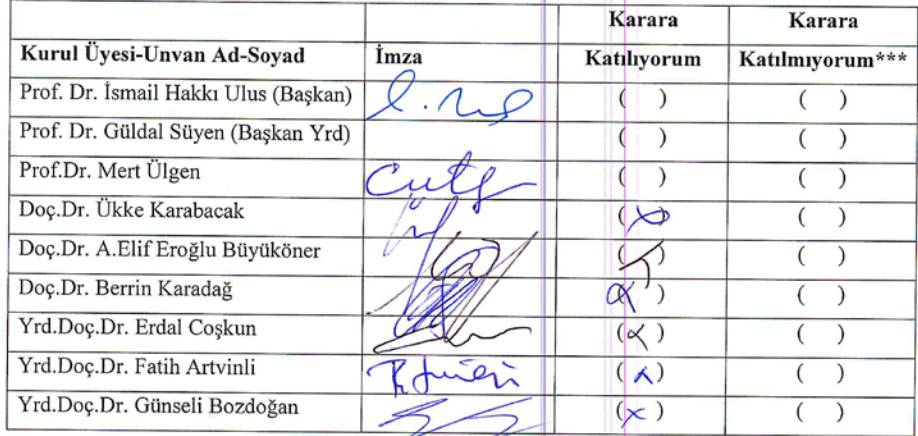 Karara Karara
Kurul Üyesi-Unvan Ad-Soyad İmza Katılıyorum Katılmıyorum***
Prof. Dr. İsmail Hakkı Ulus (Başkan) ( ) ( )
Prof. Dr. Güldal Süyen (Başkan Yrd) ( ) ( )
Prof.Dr. Mert Ülgen ( ) ( )
Doç.Dr. Ükke Karabacak (x) ( )
Doç.Dr. A.Elif Eroğlu Büyüköner ( ) ( )
Doç.Dr. Berrin Karadağ (x) ( )
Yrd.Doç.Dr. Erdal Coşkun (x) ( )
Yrd.Doç.Dr. Fatih Artvinli (x) ( )
Yrd.Doç.Dr. Günseli Bozdoğan (x) ( )